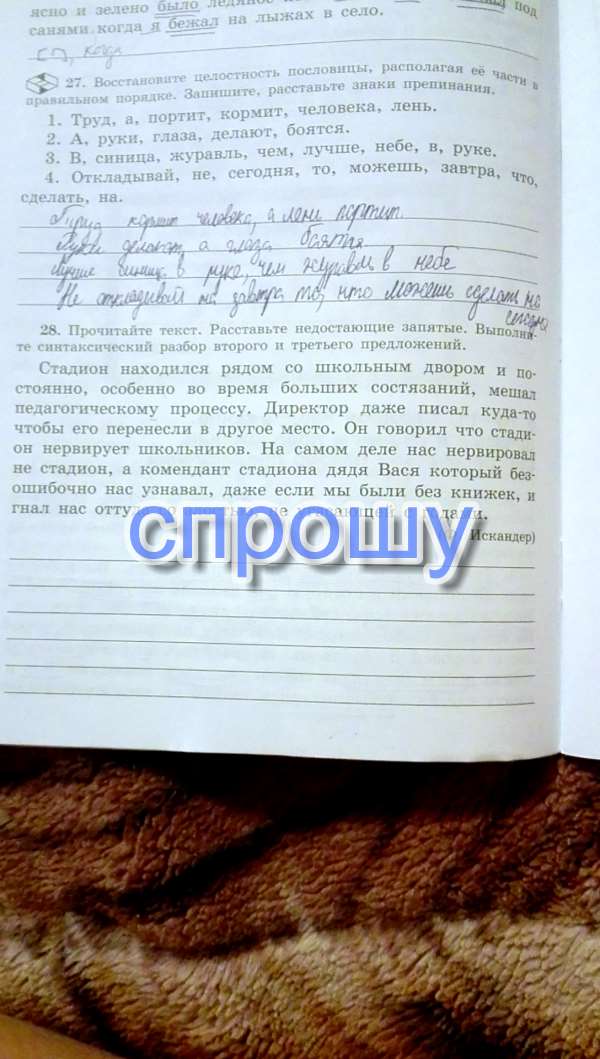 ясно и зелено было ледяное под
санями когда я бежал на лыжах в село.
когда
27. Восстановите целостность пословицы, располагая её части в
правильном порядке. Запишите, расставьте знаки препинания.
1. Труд, а, портит, кормит, человека, лень.
2. А, руки, глаза, делают, боятся.
3. В, синица, журавль, чем, лучше, небе, в, руке.
4. Откладывай, не, сегодня, то, можешь, завтра, что,
сделать, на.
Труд кормит человека, а лень портит.
Руки делают, а глаза боятся
Лучше синица в руке, чем журавль в небе
Не откладывай на завтра то, что можешь сделать на
сегодня
28. Прочитайте текст. Расставьте недостающие запятые. Выполни-
те синтаксический разбор второго и третьего предложений.
Стадион находился рядом со школьным двором и по-
стоянно, особенно во время больших состязаний, мешал
педагогическому процессу. Директор даже писал куда-то
чтобы его перенесли в другое место. Он говорил что стади-
он нервирует школьников. На самом деле нас нервировал
не стадион, а комендант стадиона дядя Вася который без-
ошибочно нас узнавал, даже если мы были без книжек, и
гнал нас
спрошу
Искандер)